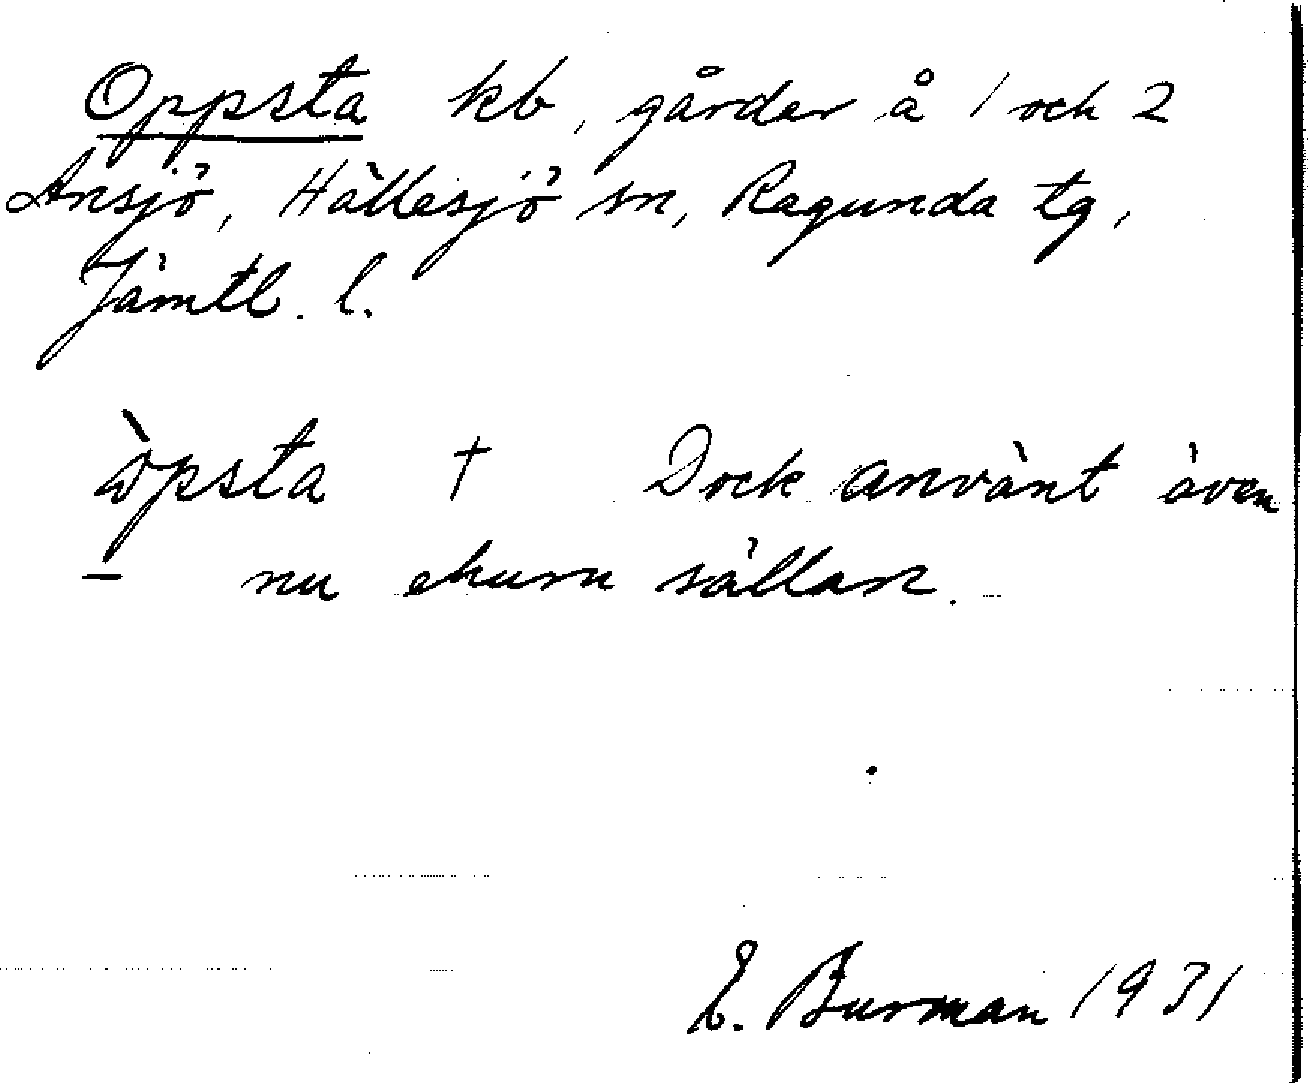 Oppsta kb, gårdar å 1 och 2
Ansjö, Hällesjö sn, Ragunda tg,
Jämtl. l.
òpsta † Dock använt även
– nu ehuru sällan.
E. Burman 1931